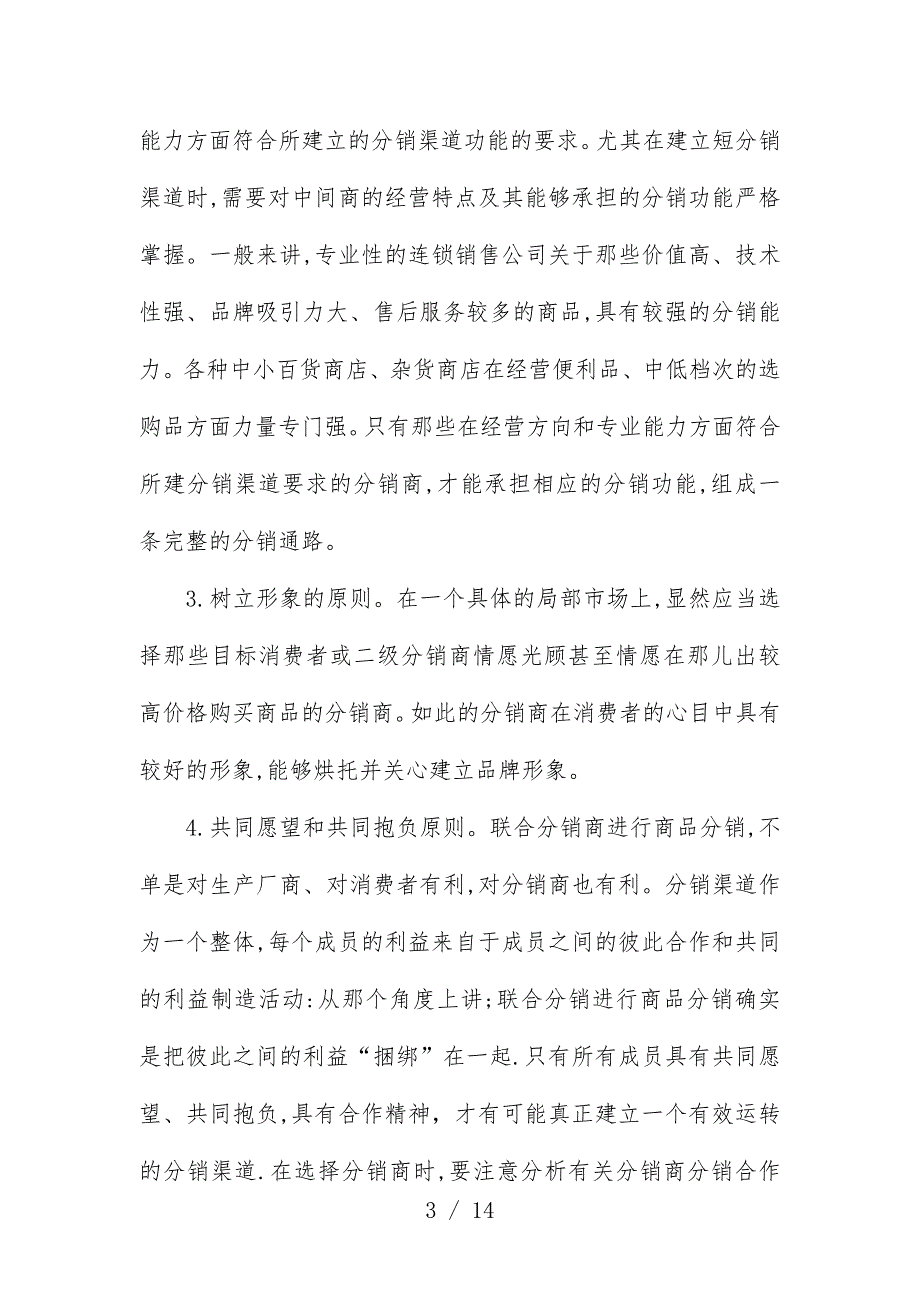 能力方面符合所建立的分销渠道功能的要求。尤其在建立短分销
渠道时,需要对中间商的经营特点及其能够承担的分销功能严格
掌握。一般来讲,专业性的连锁销售公司关于那些价值高、技术
性强、品牌吸引力大、售后服务较多的商品,具有较强的分销能
力。各种中小百货商店、杂货商店在经营便利品、中低档次的选
购品方面力量专门强。只有那些在经营方向和专业能力方面符合
所建分销渠道要求的分销商,才能承担相应的分销功能,组成一
条完整的分销通路。
3.树立形象的原则。在一个具体的局部市场上,显然应当选
择那些目标消费者或二级分销商情愿光顾甚至情愿在那儿出较
高价格购买商品的分销商。如此的分销商在消费者的心目中具有
较好的形象,能够烘托并关心建立品牌形象。
4.共同愿望和共同抱负原则。联合分销商进行商品分销,不
单是对生产厂商、对消费者有利,对分销商也有利。分销渠道作
为一个整体,每个成员的利益来自于成员之间的彼此合作和共同
的利益制造活动:从那个角度上讲;联合分销进行商品分销确实
是把彼此之间的利益“捆绑”在一起.只有所有成员具有共同愿
望、共同抱负,具有合作精神，才有可能真正建立一个有效运转
的分销渠道.在选择分销商时,要注意分析有关分销商分销合作
3 / 14